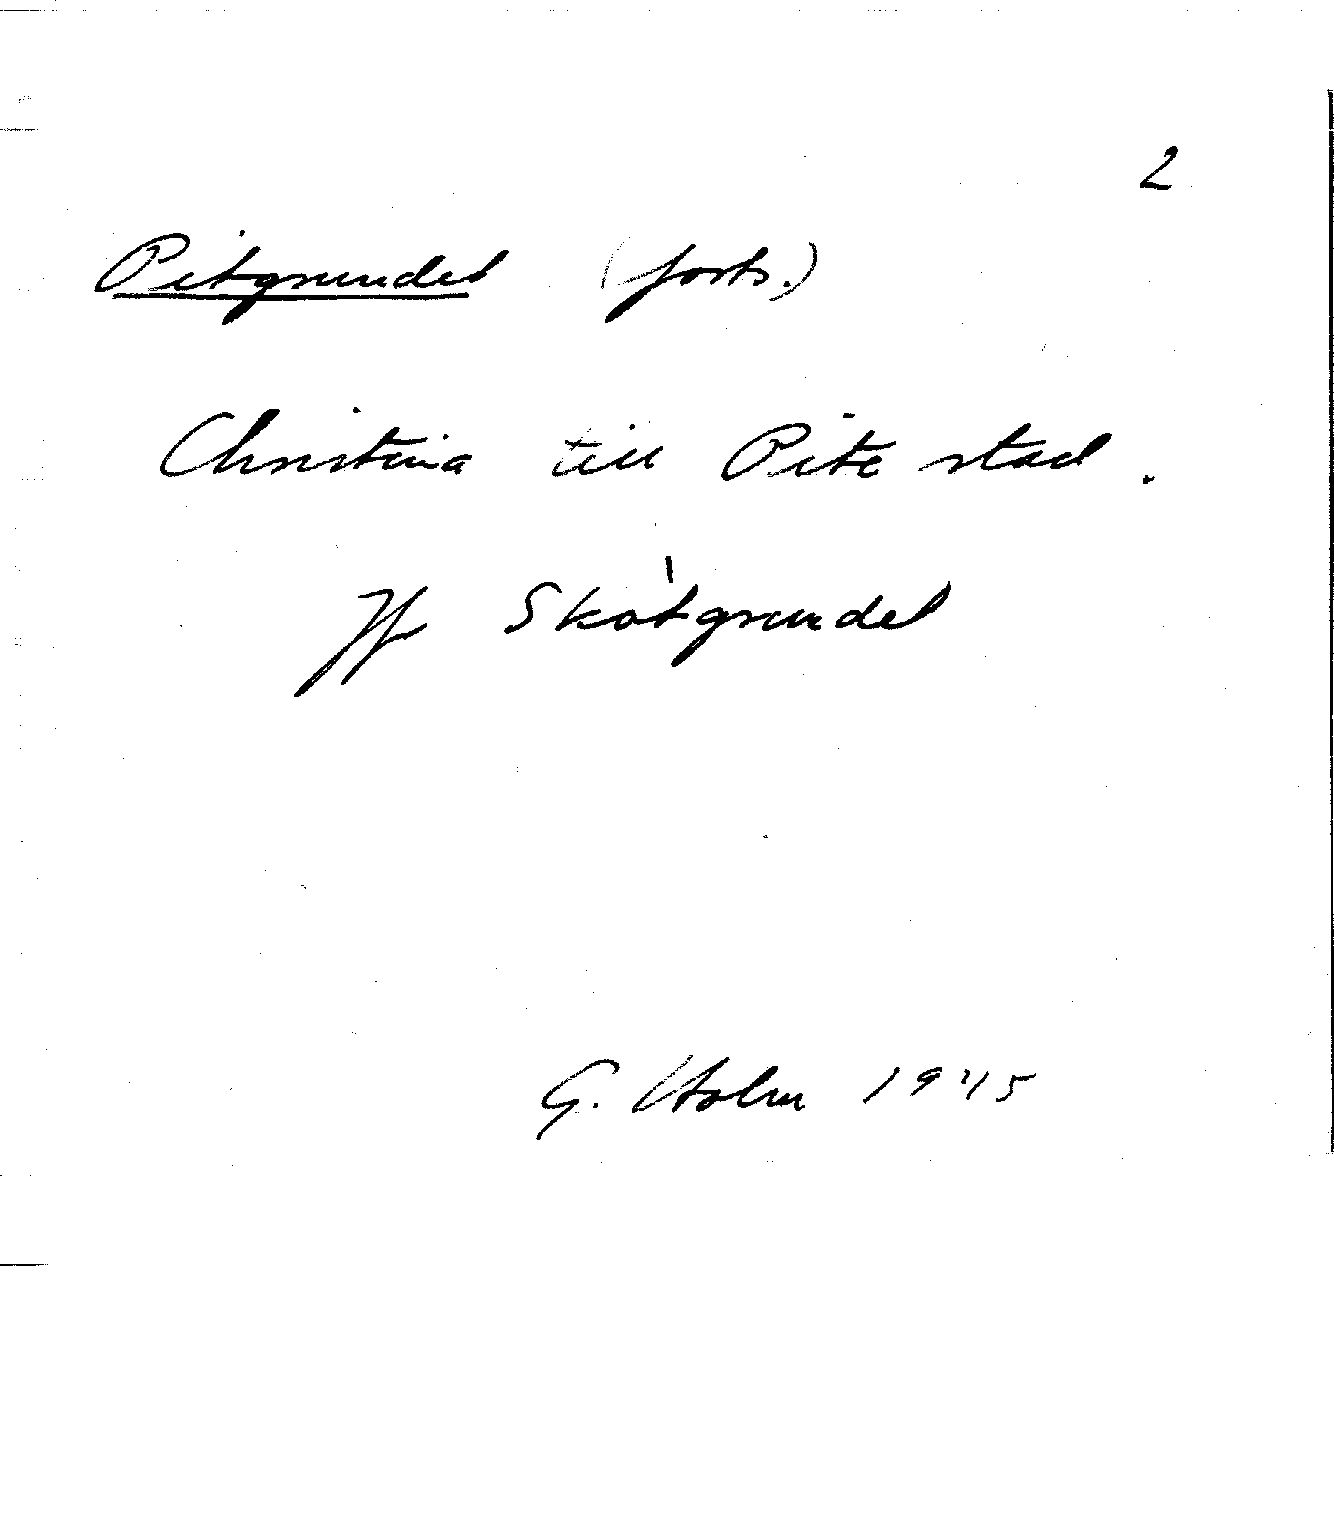 2
Pitgrundet (forts.)
Christina till Pite stad.
Jfr Skotgrundet
G. Holm 1945